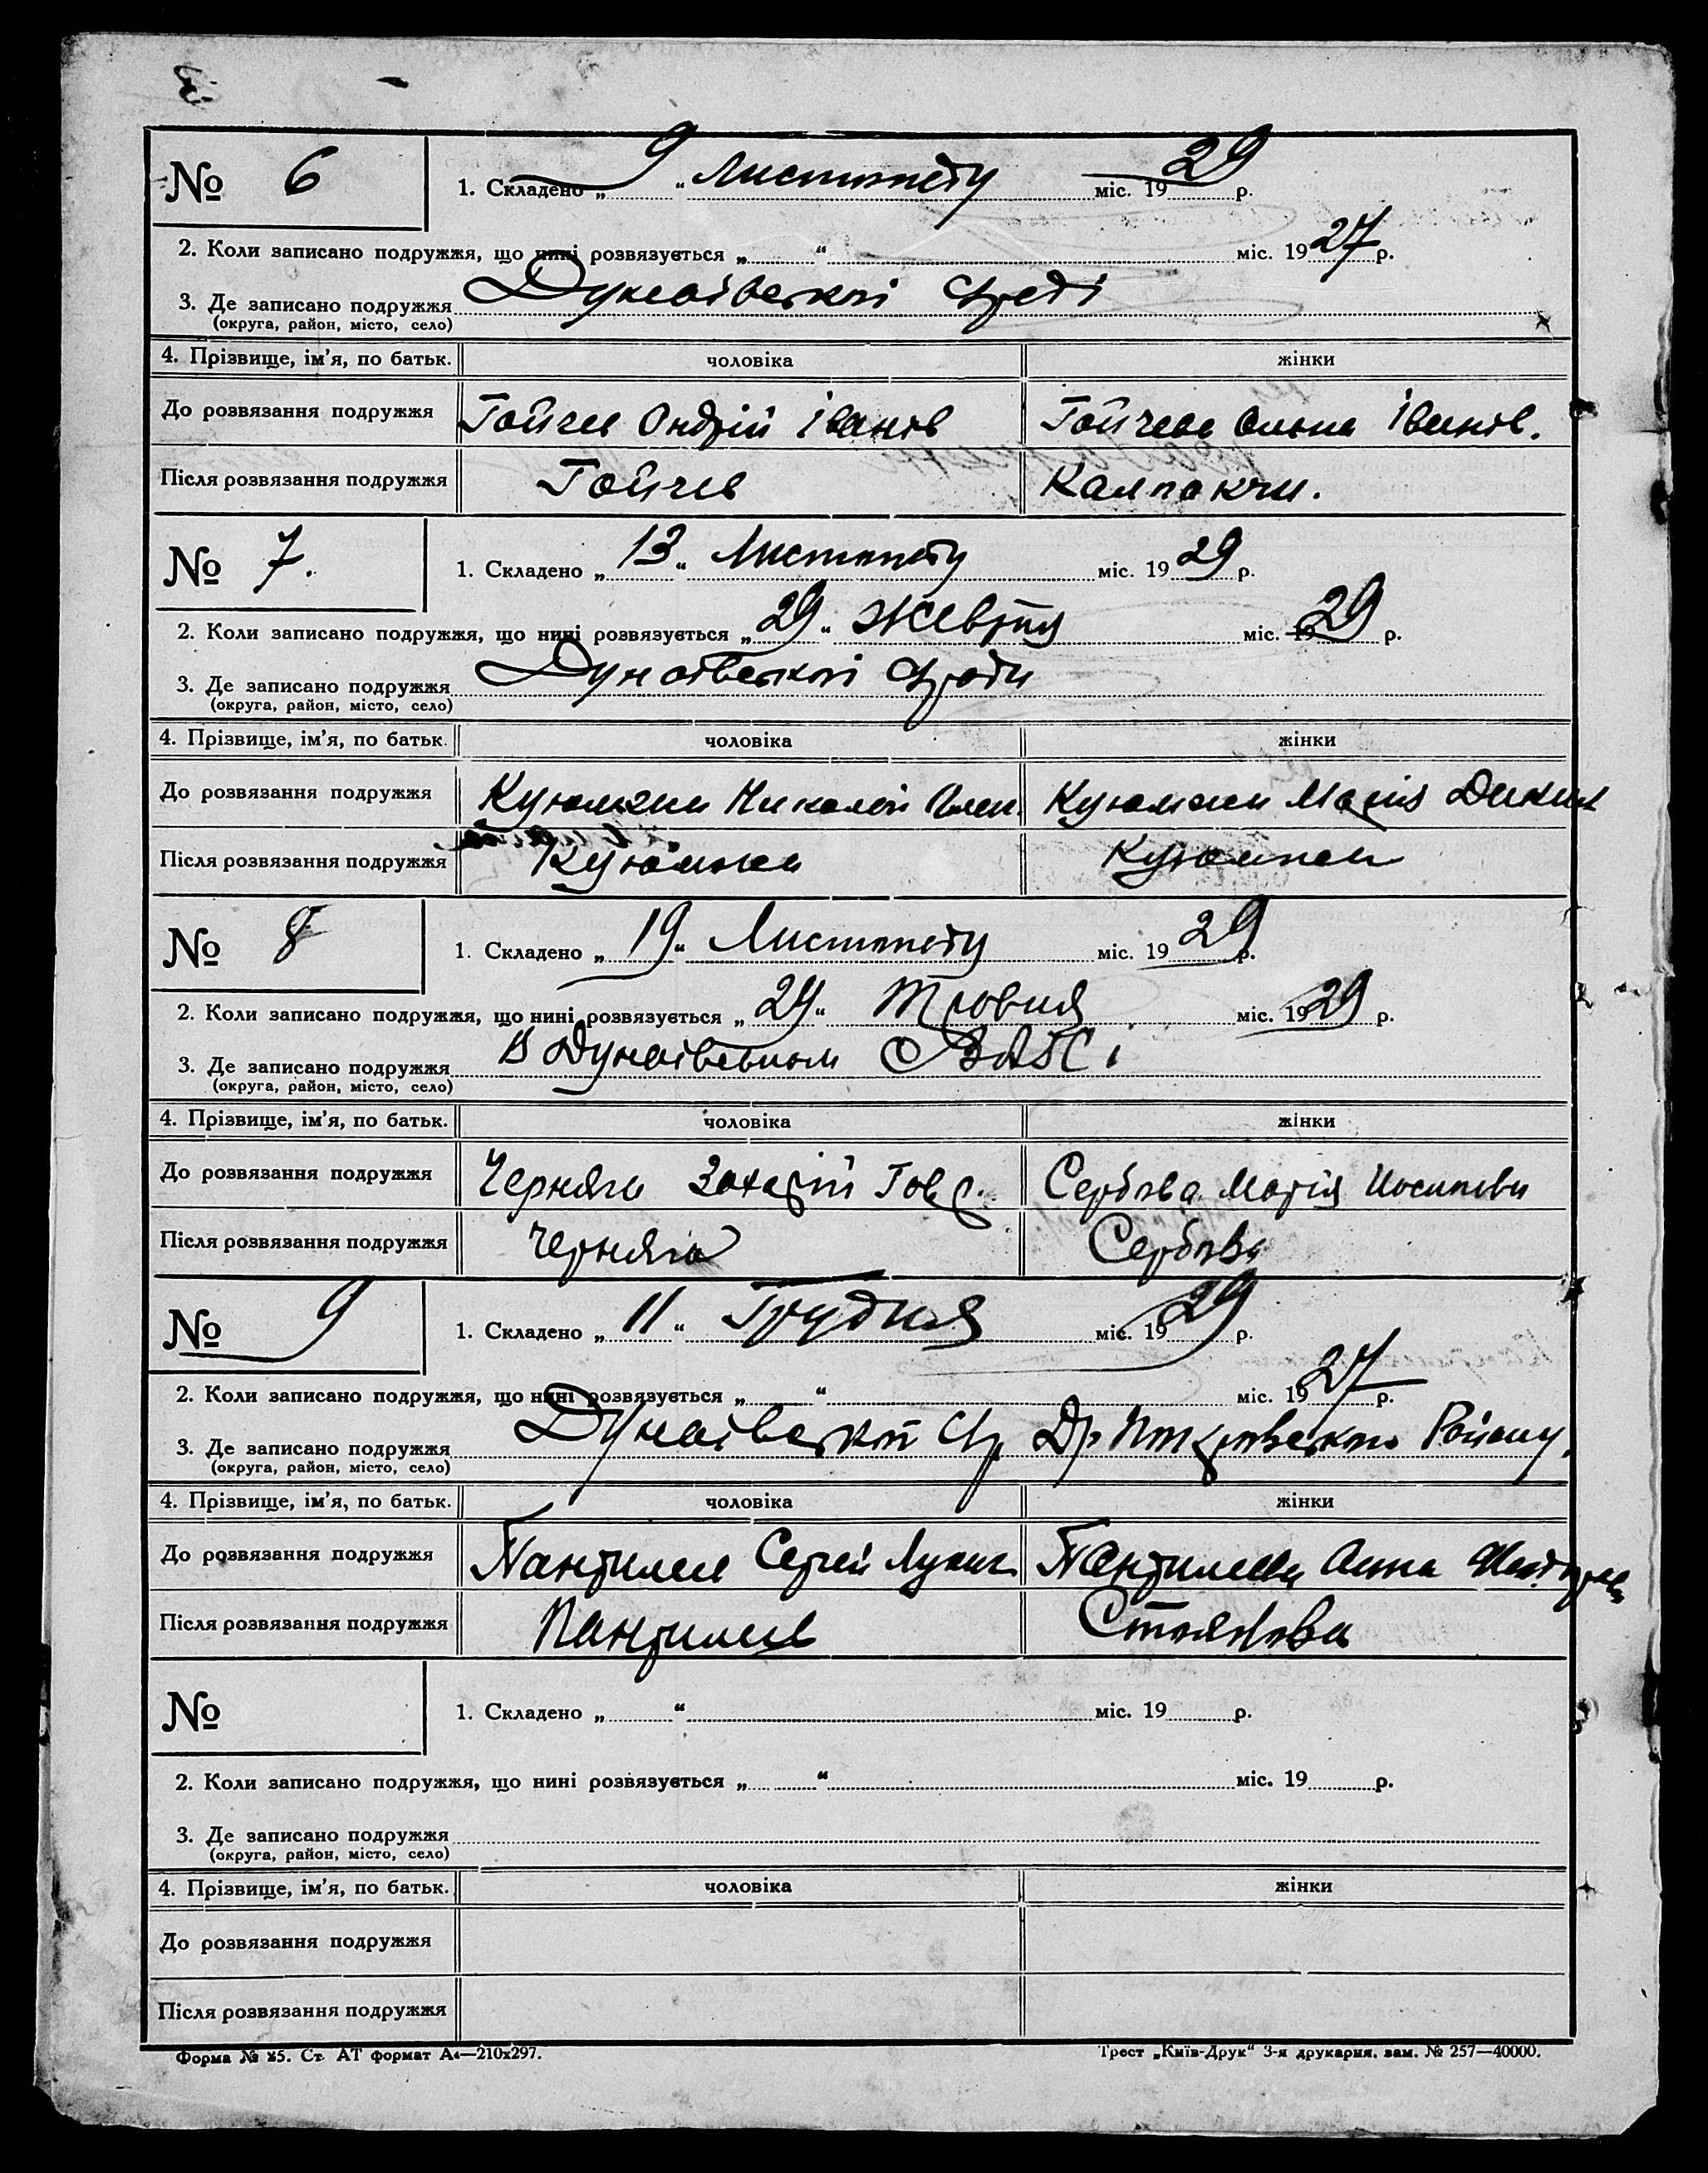 № 6 1. Складено „ 9 “ Листопаду міс. 19 29 р.
2. Коли записано подружжя, що нині розвязується „ “ міс. 19 27 р.
3. Де записано подружжя Дунаівської
(округа, район, місто, село)
4. Прізвище, ім’я, по батьк. чоловіка жінки
До розвязання подружжя Гойчев Ондрій Іванов Гойчева Іванов.
Після розвязання подружжя Гойчев Калпакчи.
№ 7. 1. Складено „ 13 “ Листопаду міс. 19 29 р.
2. Коли записано подружжя, що нині розвязується „ 29 “ Жевтня міс. 19 29 р.
3. Де записано подружжя Дунаівської
(округа, район, місто, село)
4. Прізвище, ім’я, по батьк. чоловіка жінки
До розвязання подружжя Куюмжи Николай Куюмжи Марія
Після розвязання подружжя Куюмжи Куюмжи
№ 8 1. Складено „ 19 “ Листопаду міс. 19 29 р.
2. Коли записано подружжя, що нині розвязується „ 24 “ міс. 19 29 р.
3. Де записано подружжя В ЗАГСі
(округа, район, місто, село)
4. Прізвище, ім’я, по батьк. чоловіка жінки
До розвязання подружжя Черняга Захарій Сербова Марія
Після розвязання подружжя Черняга Сербова
№ 9 1. Складено „ 11 “ Грудня міс. 19 29 р.
2. Коли записано подружжя, що нині розвязується „ “ міс. 19 27 р.
3. Де записано подружжя Дунаівській Району.
(округа, район, місто, село)
4. Прізвище, ім’я, по батьк. чоловіка жінки
До розвязання подружжя Пантилев Сергей Лукич Пантилева Анна
Після розвязання подружжя Пантилев Стоянова
№ 1. Складено „ “ міс. 19 р.
2. Коли записано подружжя, що нині розвязується „ “ міс. 19 р.
3. Де записано подружжя
(округа, район, місто, село)
4. Прізвище, ім’я, по батьк. чоловіка жінки
До розвязання подружжя
Після розвязання подружжя
Форма № 25. Ст. АТ формат А4—210х297. Трест „Київ-Друк“ 3-я друкарня. зам. № 257—40000.